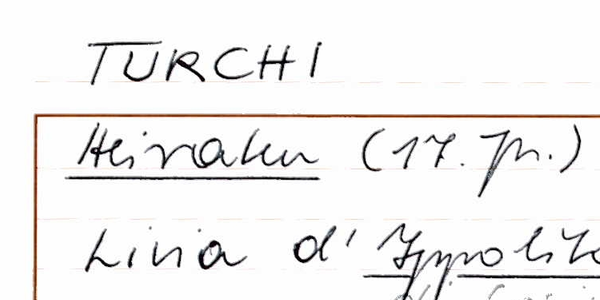 TURCHI
Heiraten (17. Jh.)
Livia d'Ippolito